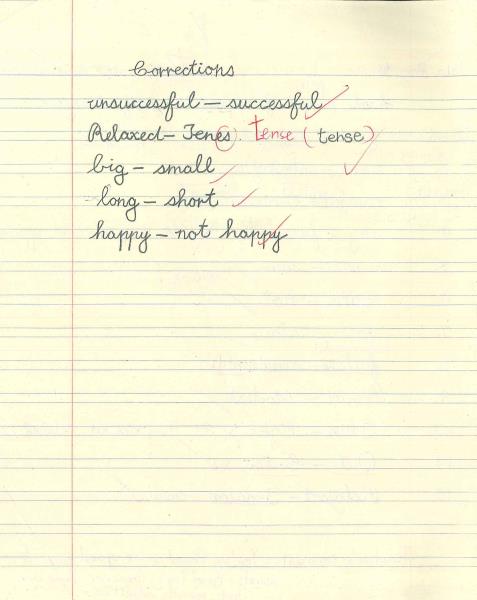 Corrections
unsuccessful – successful
Relaxed – Tenes. tense (tense)
big – small
long – short
happy – not happy